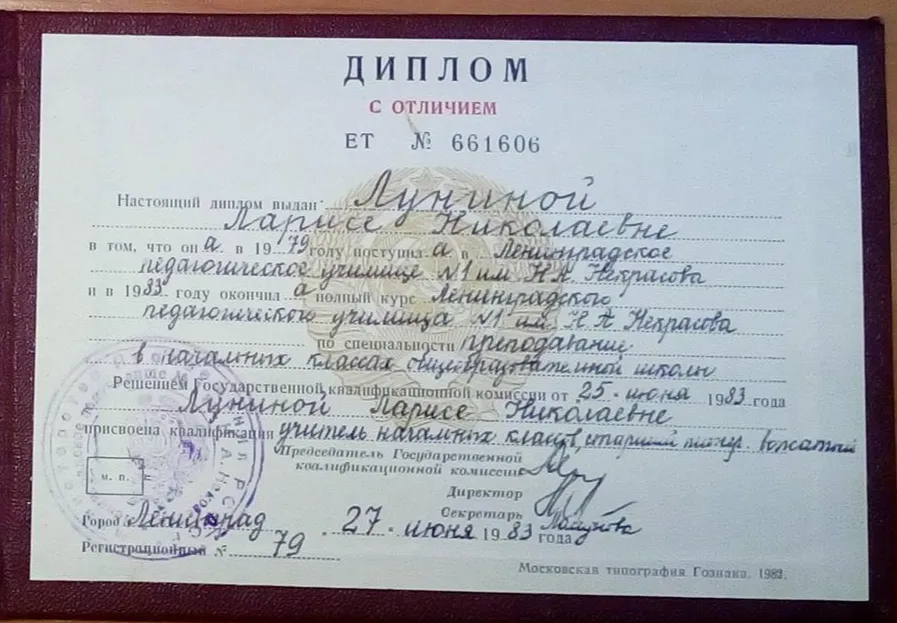 ДИПЛОМ
С ОТЛИЧИЕМ
ЕТ № 661606
Настоящий диплом выдан Луниной
Ларисе Николаевне
в том, что он а в 1979 году поступил а в Ленинградское
педагогическое училище N1 им. Н.А. Некрасова
и в 1983 году окончил а полный курс Ленинградского
педагогического училища N1 им. Н.А. Некрасова
по специальности преподавание
в начальных классах общеобразовательной школы
Решением Государственной квалификационной комиссии от 25 июня 1983 года
Луниной Ларисе Николаевне
присвоена квалификация учитель начальных классов, старший пионер. вожатый
Председатель Государственной
квалификационной комиссии
Директор
Секретарь
Город Ленинград 27 июня 1983 года
Регистрационный № 79
м. п.
Московская типография Гознака. 1982.